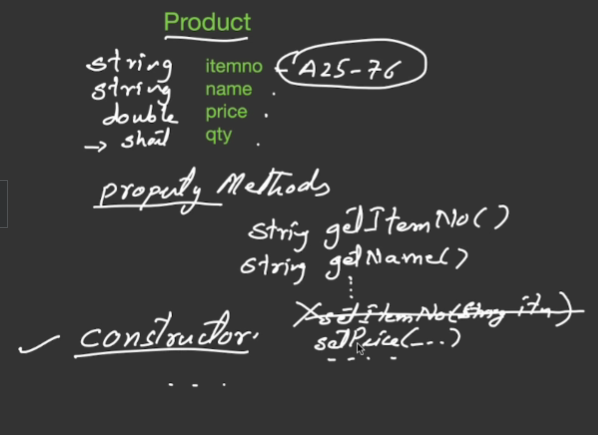 Product
string itemno - A25-76
string name .
double price .
→ short qty .
property Methods
string getItemNo()
string getName()
setItemNo(String itn)
✓ constructor.
setPrice(---)
- - - -
. . .